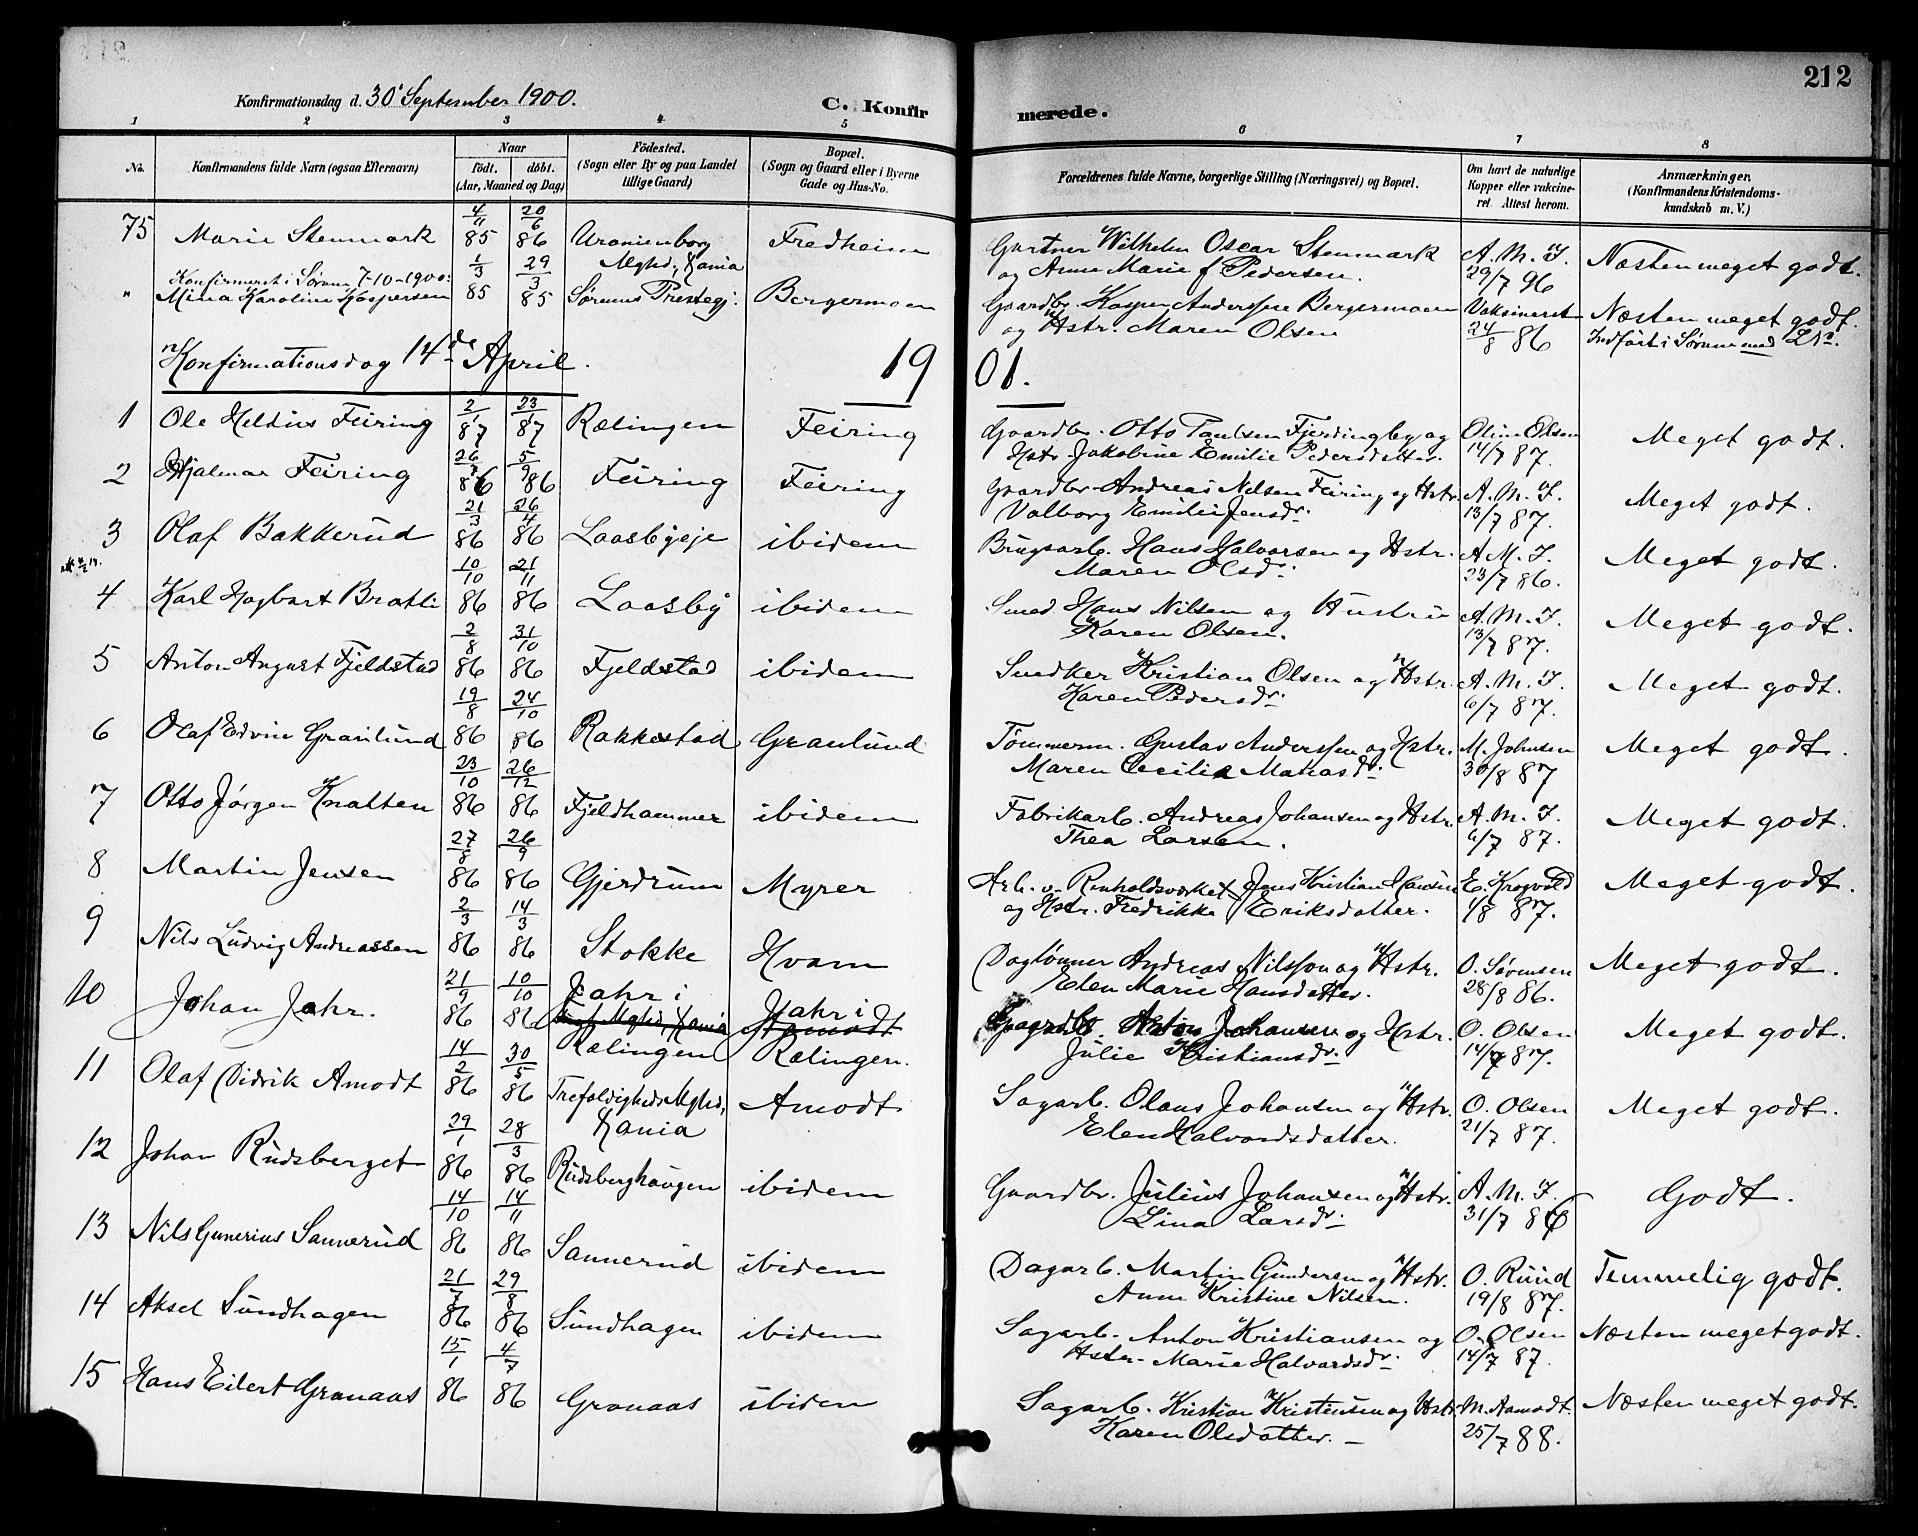 212
Konfirmationsdag d. 30' September 1900. C. Konfir merede.
1 2 3 4 5 6 7 8
No. Konfirmandens fulde Navn (ogsaa Efternavn) Naar født. døbt. (Aar, Maaned og Dag) Fødested. (Sogn eller By og paa Landet tillige Gaard) Bopæl. (Sogn og Gaard eller i Byerne Gade og Hus-No. Forældrenes fulde Navne, borgerlige Stilling (Næringsvei) og Bopæl. Om havt de naturlige Kopper eller vakcineret. Attest herom. Anmærkninger. (Konfirmandens Kristendomskundskab m. V.)
75 Marie Stenmark 4/11 85 20/6 86 Uranienborg Mghd, Kania Fredheim Gartner Wilhelm Oscar Stenmark og Anne Marie f Pedersen. A. M. I. 29/7 96 Næsten meget godt.
Konfirmeret i Sørum 7-10-1900:
" Mina Karoline Kaspersen 1/3 85 29/3 85 Sørums Prestegj. Bergermoen Gaardbr. Kasper Anderssen Bergermoen og Hstr. Maren Olsen Vaksineret 24/8 86 Næsten meget godt. Indført i Sørum med
Konfirmationsdag 14de April. 19 01.
1 Ole Heldius Feiring 2/1 87 23/1 87 Rælingen Feiring Gaardbr. Otto Paulsen Fjerdingby og Hstr Jakobine Emilie Pedersdatter. Oline Olsen 14/7 87. Meget godt.
2 Hjalmar Feiring 26/7 86 5/9 86 Feiring Feiring Gaardbr. Andreas Nilsen Feiring og Hstr. Valborg Emilie Jensdr. A. M. I. 13/7 87. Meget godt.
3 Olaf Bakkerud 21/3 86 26/4 86 Laasbyeje ibidem Brugsarb. Hans Halvorsen og Hstr. Maren Olsdr: A M. I. 23/7 86. Meget godt.
4 Karl Hagbart Bratli 10/10 86 21/11 86 Laasby ibidem Smed Hans Nilsen og Hustru Karen Olsen. A. M. I. 13/7 87. Meget godt.
5 Anton August Fjeldstad 2/8 86 31/10 86 Fjeldstad ibidem Snedker Kristian Olsen og Hstr. Karen Pedersdr: A. M. I. 6/7 87. Meget godt.
6 Olaf Edvin Granlund 19/8 86 24/10 86 Rakkestad Granlund Tømmerm. Gustav Anderssen og Hstr. Maren Cecilie Matiasdr: M. Johnsen 30/8 87 Meget godt.
7 Otto Jørgen Knatten 23/10 86 26/12 86 Fjeldhammer ibidem Fabrikarb. Andreas Johansen og Hstr. Thea Larsen. A. M. I. 6/7 87. Meget godt.
8 Martin Jensen 27/8 86 26/9 86 Gjerdrum Myrer Arb. v. Renholdsværket, Jens Kristian Hansen og Hstr. Fredrikke Eriksdatter. E. Krogvold 1/8 87. Meget godt.
9 Nils Ludvig Andreassen 2/3 86 14/3 86 Stokke Hvam Daglønner Andreas Nilsson og Hstr. Elen Marie Hansdatter. O. Sørensen 28/8 86. Meget godt.
10 Johan Jahr. 21/9 86 10/10 86 Jahr i Rælingen Jahr i Rælingen. Gaardbr. Anton Johansen og Hstr. Julie Kristiansdr: O. Olsen 14/7 87. Meget godt.
11 Olaf Didrik Amodt 14/2 86 30/5 86 Trefoldigheds Mghd, Kania Amodt Sagarb. Olaus Johansen og Hstr. Elen Halvordsdatter. O. Olsen 21/7 87. Meget godt.
12 Johan Rudsberget 29/1 86 28/3 86 Rudsberghaugen ibidem Gaardbr. Julius Johansen og Hstr. Lina Larsdr: A. M. I. 31/7 86 Godt.
13 Nils Gunerius Sannerud 14/10 86 14/11 86 Sannerud ibidem Dagarb. Martin Gundersen og Hstr. Anne Kristine Nilsen. O. Ruud 19/8 87. Temmelig godt.
14 Aksel Sundhagen 21/7 86 29/8 86 Sundhagen ibidem Sagarb. Anton Kristiansen og Hstr. Marie Halvordsdr: O. Olsen 14/7 87. Næsten meget godt.
15 Hans Eilert Granaas 15/1 86 4/7 86 Granaas ibidem Sagarb. Kristian Kristensen og Hstr Karen Olsdatter. M. Aamodt. 25/7 88. Næsten meget godt.